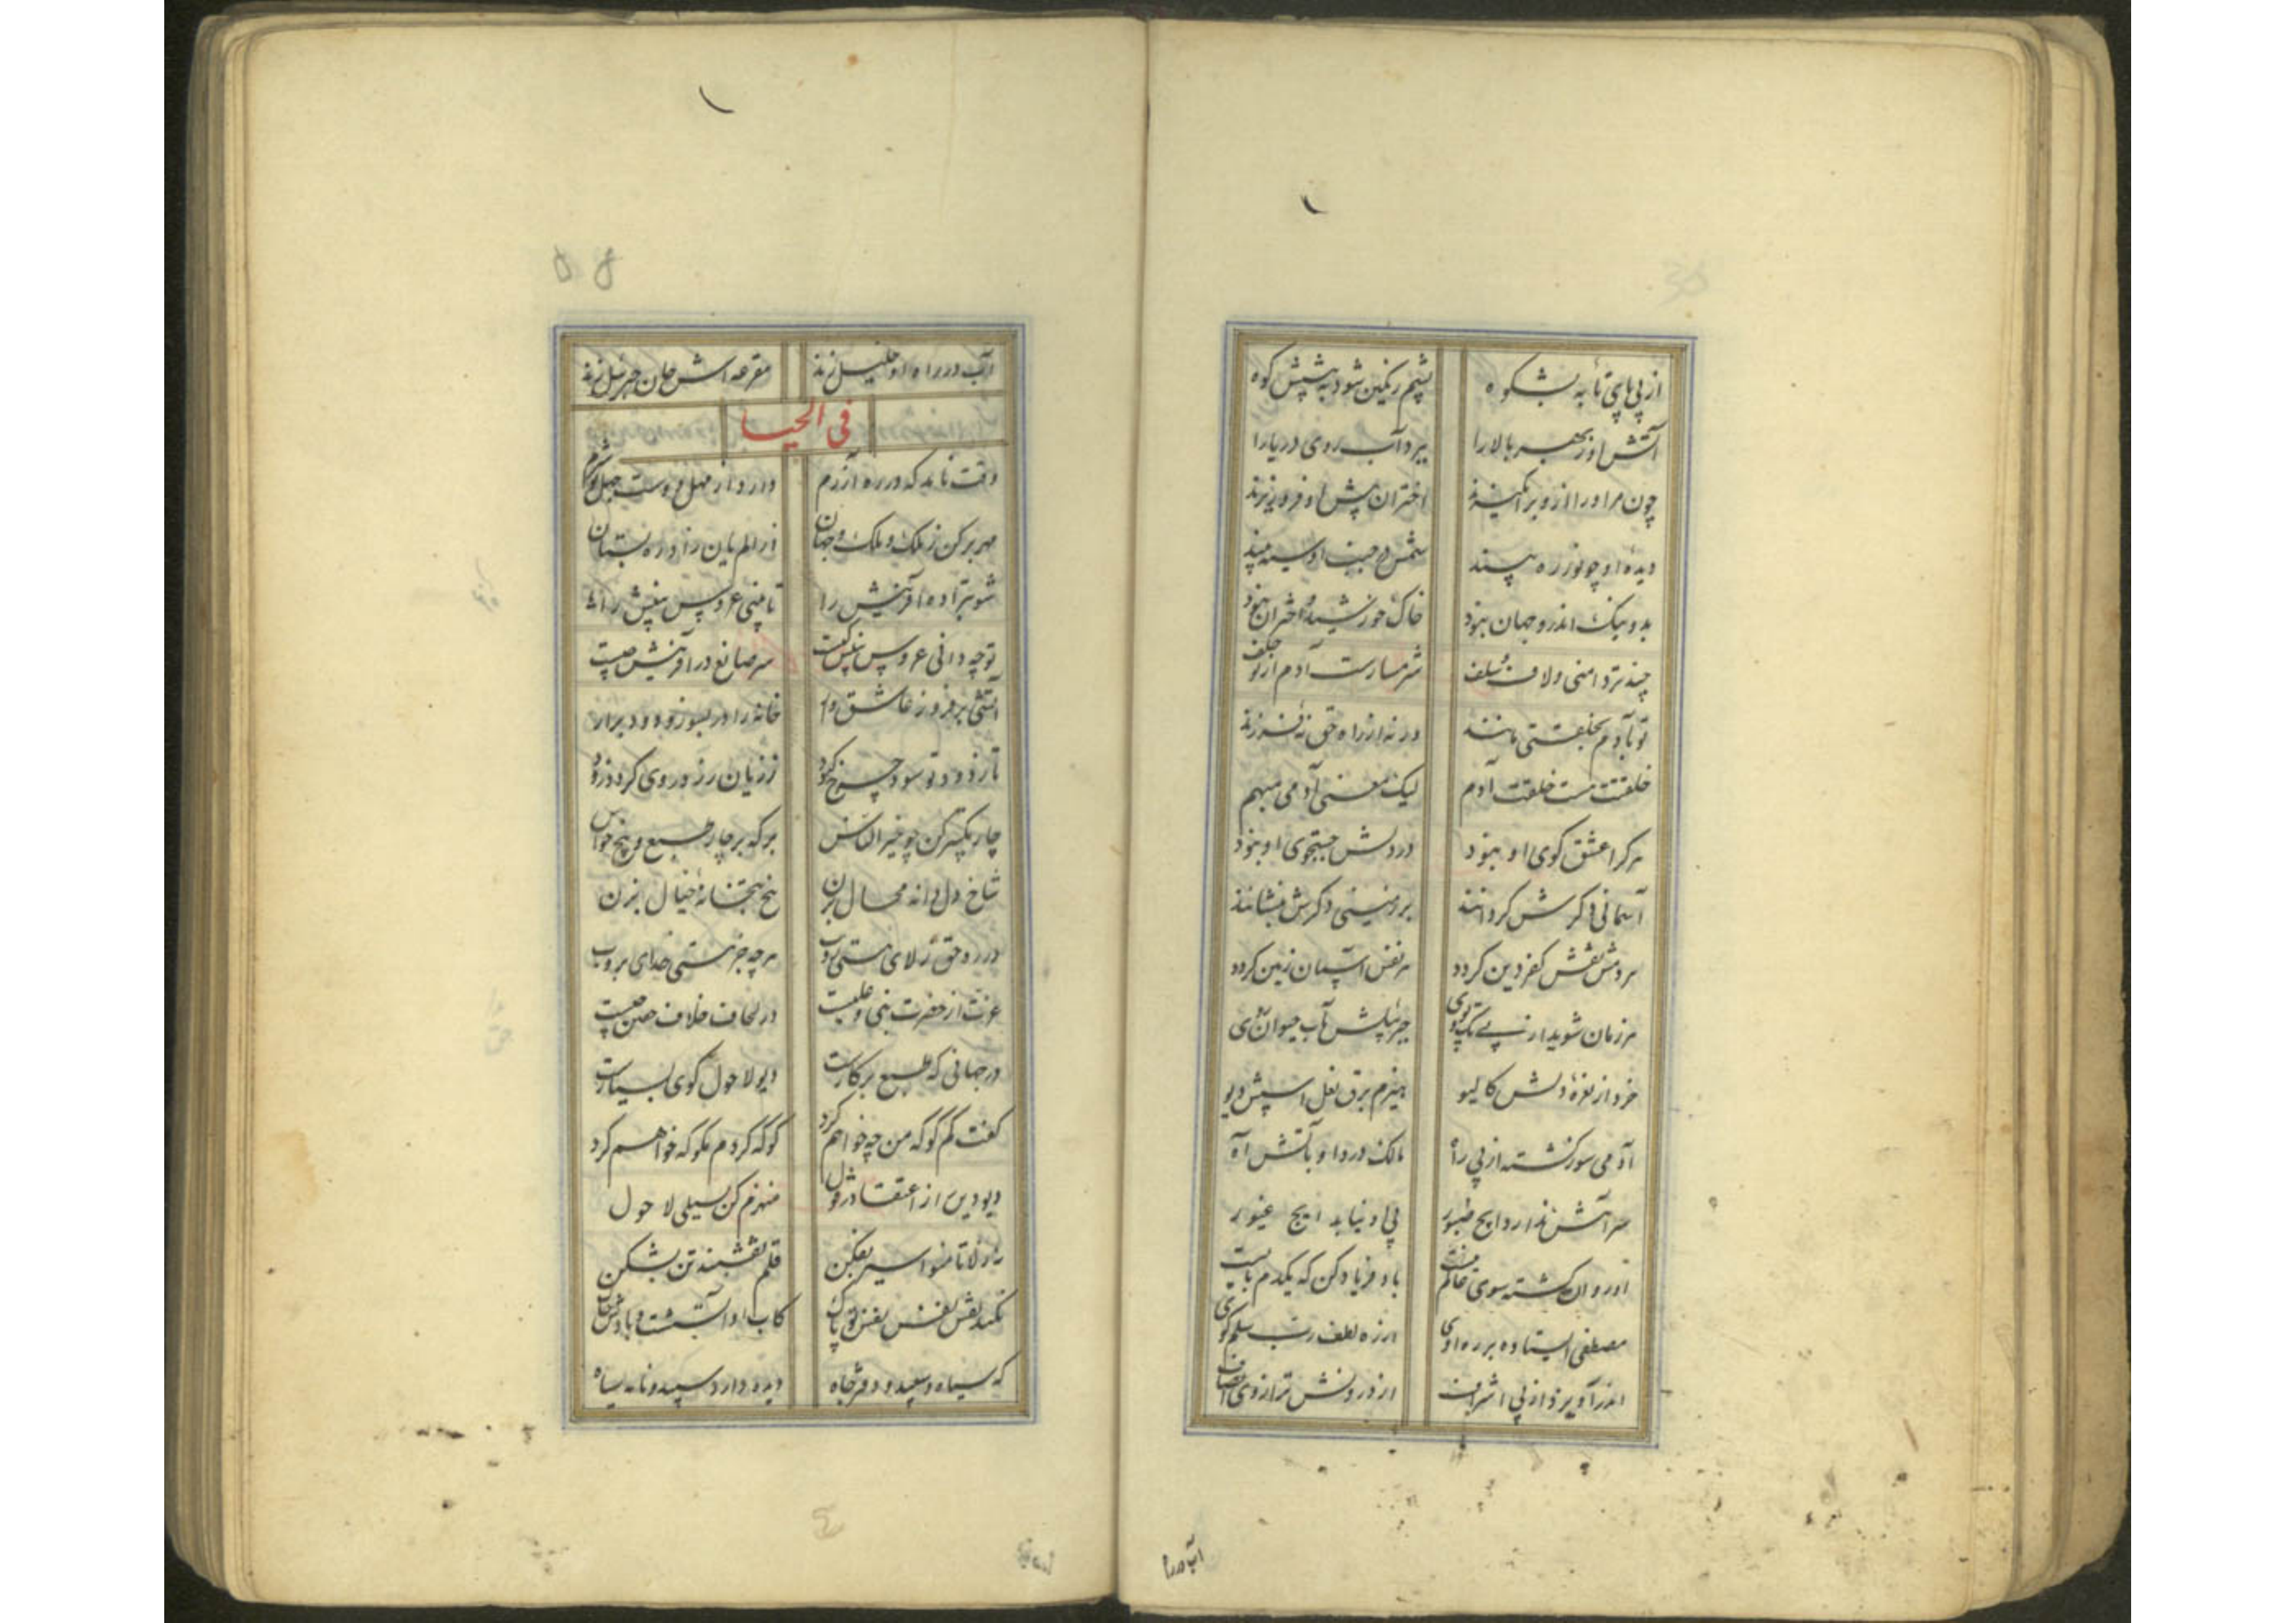 از پی پای تا به بشکوه پشم رنگین شود به پیشش کوه
آتش او ز بهر بالا را ببرد آب روی دریا را
چون مر او را ازو برانگیزند اختران پیش او فرو ریزند
دیده او چو نور ره بیند شمس در جنب او سیه بیند
بد و نیک اندرو جهان نبود خاک خورشید و اختران نبود
چند تردامنی ولاف شلف شرمسارست آدم از تو خلف
تو بآدم بخلقتی مانند ورنه از راه حق نه فرزند
خلقتت هست خلقت آدم لیک معنی آدمی مبهم
هرکرا عشق کوی او نبود در دلش جستجوی او نبود
آسمانی دکرش کردانند بر زمینی دکرش بنشانند
هر دمش نقش کفر دین کردد هر نفس آسمان زمین کردد
هر زمان شوید از پی تک و پوی جبرئیلش بآب حیوان روی
خرد از نعره دلش کالیو هیزم برق نعل اسپش دیو
آدمی سوز کشته از پی راه مالک درد او بآتش آه
سر آتش ندارد ایچ طیور پی او نیابد ایچ غیور
او روان کشته سوی عالم باد فریاد کن که یکدم بایست
مصطفی ایستاده بر ره اوی ارزه لطف رب سلم کوی
اندر آویزد از پی اشراف از درونش ترازوی انصاف
آب در را
آب در راه او خلیل زند مقرعه اش جان جبرئیل زند
فی الحیا
وقت ناید که در ره آزرم دارد از مهل دوست جهل تو شرم
مهر برکن ز ملک و ملک و جهان در الم یان راز ره بستان
شو تبرا ده آفرینش را تا ببینی عروس بینش را
تو چه دانی عروس بینش کیست سر صانع در آفرینش چیست
آتشی برفروز عاشق وار خانه را در بسوز و دود برآر
تا ز دود تو سود چرخ کبود ز زیان رز دروی کردد زود
چار تکبیر کن چو خیرالناس برکه بر چار طبع و پنج حواس
شاخ دل دانه محال بزن بیخ بتخانه خیال بزن
در ره حق ز لای هستی روب هرچه جز هستی خدای بروب
عزت از حضرت نبی و علیست در لحاف خلاف خفتن چیست
در جهانی که طبع بر کارست دیو لاحول گوی بسیارست
گفت کم گو که من چه خواهم کرد گو که کردم مگو که خواهم کرد
دیو دین از اعتقاد درقول منهزم کن بسیلی لاحول
به ز لاتامنوا سپر بفکن قلم نقشبند تن بشکن
نکند نقش نفس نفس تو پاک کاب او آتشست و بادش خاک
که سیاه و سپید و دفتر جاه دیده دارد سپید و نامه سیاه